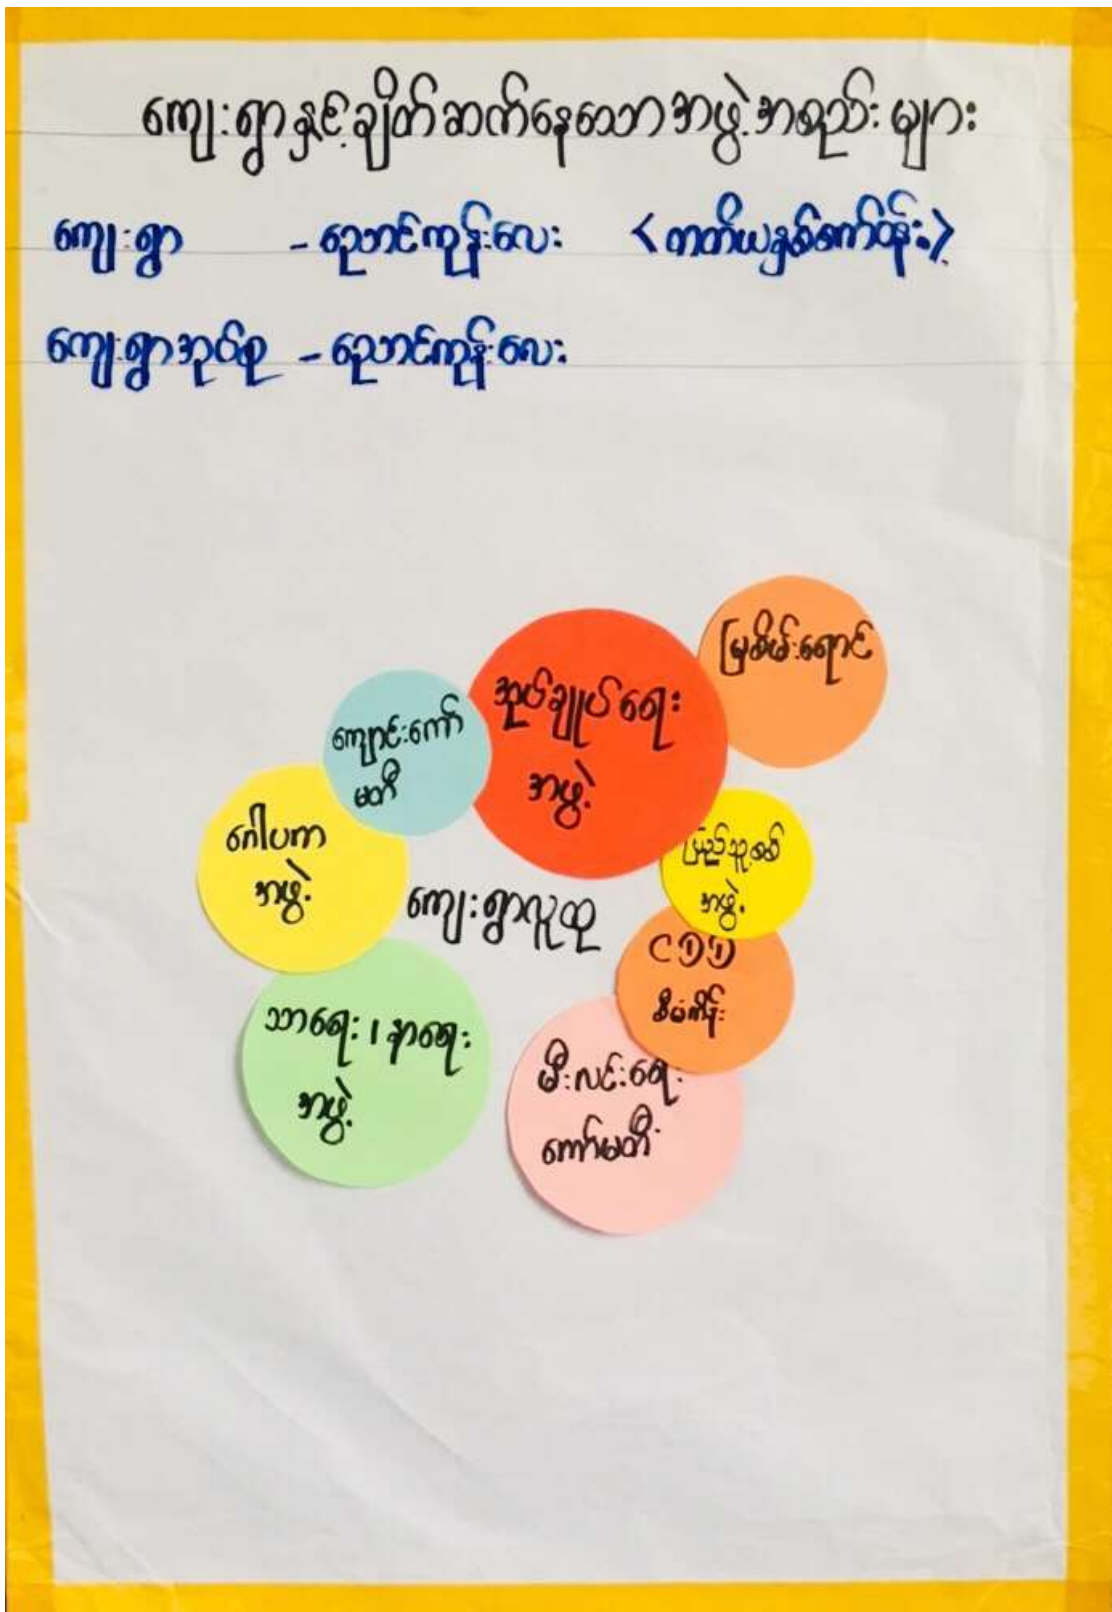 ကျေးရွာနှင့်ချိတ်ဆက်နေသောအဖွဲ့အစည်းများ
ကျေးရွာ - ညောင်ကုန်းလေး <တတိယနှစ်စက်ဝန်း>
ကျေးရွာအုပ်စု - ညောင်ကုန်းလေး
မြစိမ်းရောင်
အုပ်ချုပ်ရေး
အဖွဲ့
ကျောင်းကော်
မတီ
ဂေါပက
အဖွဲ့
ပြည်သူ့စစ်
အဖွဲ့
ကျေးရွာလူထု
CDD
စီမံကိန်း
သာရေး၊နာရေး
အဖွဲ့
မီးလင်းရေး
ကော်မတီ